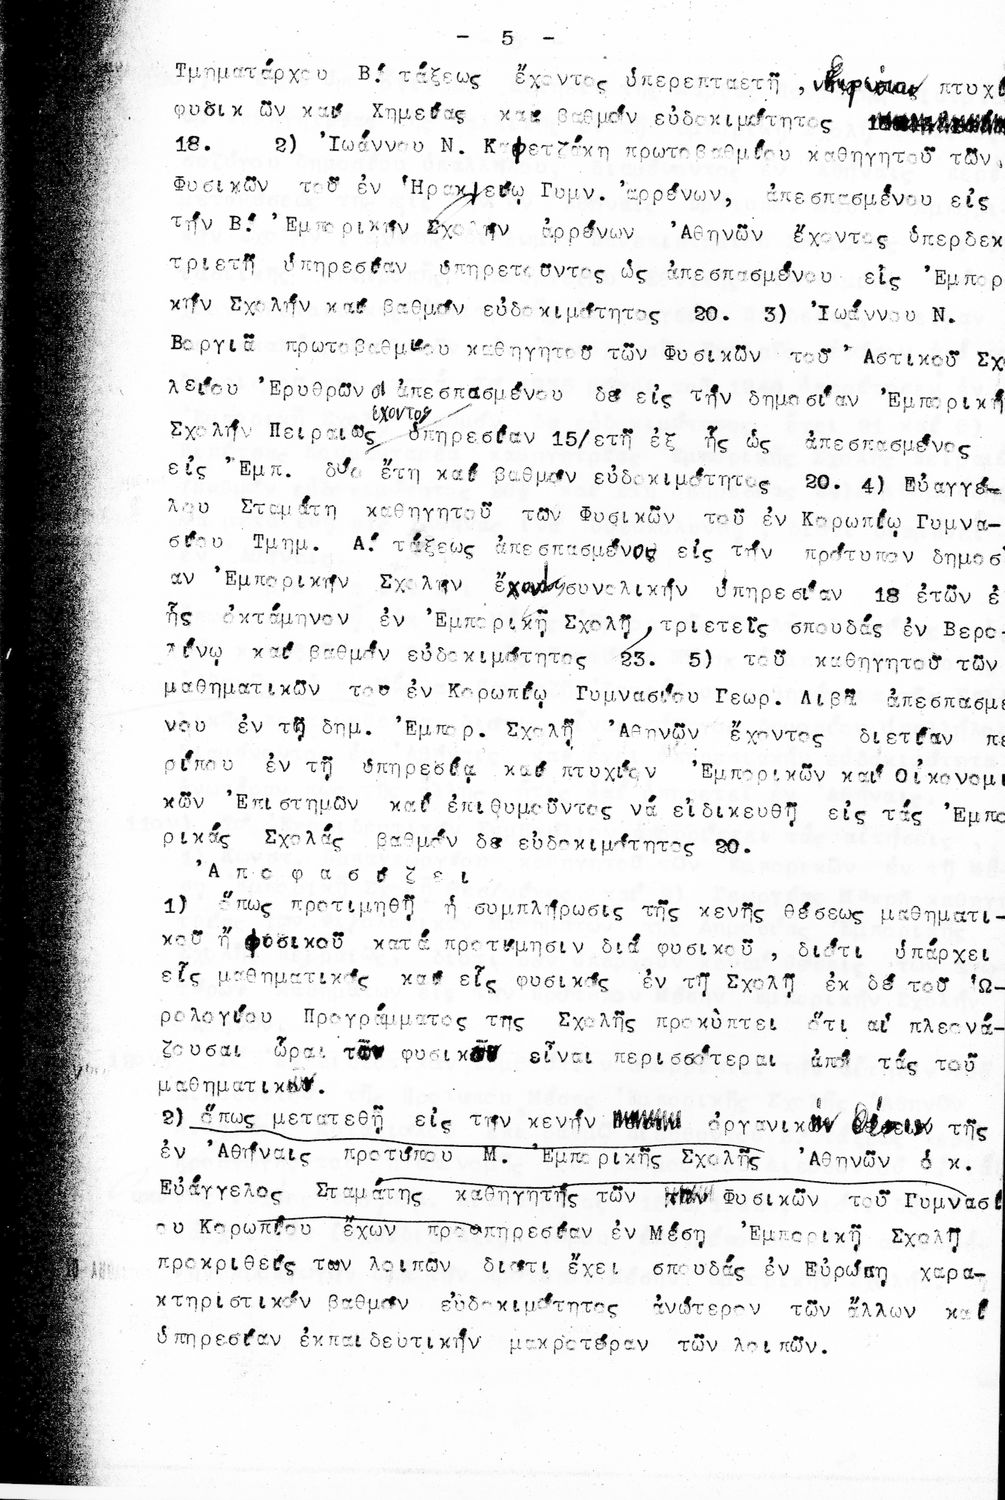 - 5 -
Τμηματάρχου Β.' τάξεως ἔχοντος ὑπερεπταετῆ , πτυχί
φυσικ ῶν καί Χημείας καί βαθμόν εὐδοκιμότητος
18. 2) Ἰωάννου Ν. Καφετζάκη πρωτοβαθμίου καθηγητοῦ τῶν
Φυσικῶν τοῦ ἐν Ἡρακλείῳ Γυμν. ἀρρένων, ἀπεσπασμένου εἰς
τήν Β.' Ἐμπορικήν Σχολήν ἀρρένων Ἀθηνῶν ἔχοντος ὑπερδεκ
τριετῆ ὑπηρεσίαν ὑπηρετοῦντος ὡς ἀπεσπασμένου εἰς Ἐμπορ
κήν Σχολήν καί βαθμόν εὐδοκιμότητος 20. 3) Ἰωάννου Ν.
Βαργιᾶ πρωτοβαθμίου καθηγητοῦ τῶν Φυσικῶν τοῦ Ἀστικοῦ Σχο
λείου Ἐρυθρῶν ἀπεσπασμένου δέ εἰς τήν δημοσίαν Ἐμπορική
ἔχοντος
Σχολήν Πειραιῶς ὑπηρεσίαν 15/ετῆ ἐξ ἧς ὡς ἀπεσπασμένος
εἰς Ἐμπ. δύο ἔτη καί βαθμόν εὐδοκιμότητος 20. 4) Εὐαγγέ-
λου Σταμάτη καθηγητοῦ τῶν Φυσικῶν τοῦ ἐν Κορωπίῳ Γυμνα-
σίου Τμημ. Α.' τάξεως ἀπεσπασμένος εἰς τήν πρότυπον δημοσί
αν Ἐμπορικήν Σχολήν ἔχοντος συνολικήν ὑπηρεσίαν 18 ἐτῶν ἐ
ἧς ὀκτάμηνον ἐν Ἐμπορικῇ Σχολῇ, τριετεῖς σπουδάς ἐν Βερο-
λίνῳ καί βαθμόν εὐδοκιμότητος 23. 5) τοῦ καθηγητοῦ τῶν
μαθηματικῶν του ἐν Κορωπίῳ Γυμνασίου Γεωρ. Λιβᾶ ἀπεσπασμέ
νου ἐν τῇ δημ. Ἐμπορ. Σχολῇ Ἀθηνῶν ἔχοντος διετίαν πε
ρίπου ἐν τῇ ὑπηρεσίᾳ καί πτυχίον Ἐμπορικῶν καί Οἰκονομι
κῶν Ἐπιστημῶν καί ἐπιθυμοῦντος νά εἰδικευθῇ εἰς τάς Ἐμπο
ρικάς Σχολάς βαθμόν δέ εὐδοκιμότητος 20.
Ἀ π ο φ α σ ί ζ ε ι
1) ὅπως προτιμηθῇ ἡ συμπλήρωσις τῆς κενῆς θέσεως μαθηματι-
κοῦ ἤ φυσικοῦ κατά προτίμησιν διά φυσικοῦ , διότι ὑπάρχει
εἷς μαθηματικός καί εἷς φυσικός ἐν τῇ Σχολῇ ἐκ δέ τοῦ Ὡ-
ρολογίου Προγράμματος της Σχολῆς προκύπτει ὅτι αἱ πλεονά-
ζουσαι ὧραι τοῦ φυσικοῦ εἶναι περισσότεραι ἀπό τάς τοῦ
μαθηματικοῦ.
2) ὅπως μετατεθῇ εἰς την κενήν ὀργανικήν θέσιν τῆς
ἐν Ἀθήναις προτύπου Μ. Ἐμπορικῆς Σχολῆς Ἀθηνῶν ὁ κ.
Εὐάγγελος Σταμάτης καθηγητής τῶν Φυσικῶν τοῦ Γυμνασί
ου Κορωπίου ἔχων προϋπηρεσίαν ἐν Μέσῃ Ἐμπορικῇ Σχολῇ
προκριθείς των λοιπῶν διότι ἔχει σπουδάς ἐν Εὐρώπῃ χαρα-
κτηριστικόν βαθμόν εὐδοκιμότητος ἀνώτερον τῶν ἄλλων καί
ὑπηρεσίαν ἐκπαιδευτικήν μακροτέραν τῶν λοιπῶν.